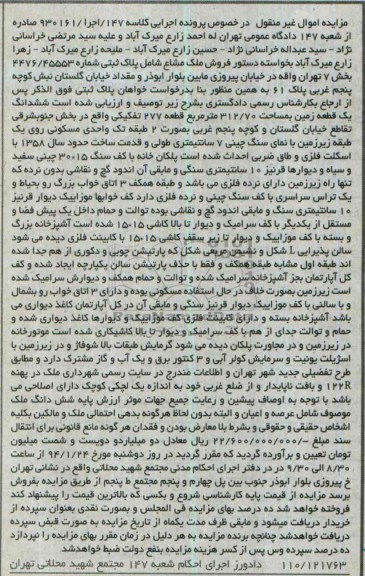 مزایده اموال غیر منقول در خصوص پرونده اجرایی کلاسه ۱۴۷/اجرا/۹۳۰۱۶۱ صادره
از شعبه ۱۴۷ دادگاه عمومی تهران له احمد زارع میرک آباد و علیه سید مرتضی خراسانی
نژاد - سید عبداله خراسانی نژاد - حسین زارع میرک آباد - ملیحه زارع میرک آباد - زهرا
زارع میرک آباد بخواسته دستور فروش ملک مشاع شامل پلاک ثبتی شماره ۴۴۷۶/۴۵۵۵۳
بخش ۷ تهران واقع در خیابان پیروزی مابین بلوار ابوذر و مقداد خیابان گلستان نبش کوچه
پنجم غربی پلاک ۶۱ به همین منظور بنا بدرخواست خواهان پلاک ثبتی فوق الذکر پس
از ارجاع بکارشناس رسمی دادگستری بشرح زیر توصیف و ارزیابی شده است ششدانگ
یک قطعه زمین بمساحت ۳۱۲/۷۰ مترمربع قطعه ۲۷۷ تفکیکی واقع در بخش جنوبشرقی
تقاطع خیابان گلستان و کوچه پنجم غربی بصورت ۲ طبقه تک واحدی مسکونی روی یک
طبقه زیرزمین با نمای سنگ چینی ۷ سانتیمتری طولی و قدمت ساخت حدود سال ۱۳۵۸ با
اسکلت فلزی و طاق ضربی احداث شده است پلکان خانه با کف سنگ ۱۵*۳۰ چینی سفید
و سیاه و دیوارها قرنیز ۱۰ سانتیمتری سنگی و مابقی آن اندود گچ و نقاشی بدون نرده که
تنها راه زیرزمین دارای نرده فلزی می باشد و طبقه همکف ۳ اتاق خواب بزرگ رو بحیاط و
یک تراس سراسری با کف سنگ چینی و نرده فلزی دارد کف خوابها موزاییک دیوار قرنیز
۱۰ سانتیمتری سنگی و مابقی اندود گچ و نقاشی بوده توالت و حمام داخل یک پیش فضا و
مستقل از یکدیگر با کف سرامیک و دیوار تا بالا کاشی ۱۵*۱۵ شده است آشپزخانه بزرگ
و بسته با کف موزاییک و دیوار تا زیر سقف کاشی ۱۵*۱۵ با کابینت فلزی دیده می شود
سالن پذیرایی L شکل و نشیمن مربعی شکل که پارتیشن چوبی و دکوری از هم جدا شده
اند طبقه اول مشابه طبقه همکف و فقط با حذف پارتیشن سالن یکپارچه ایجاد شده و کف
کل آپارتمان بجز آشپزخانه سرامیک شده و توالت و حمام همکف و دیوارش سرامیک شده
است زیرزمین بصورت خلاف در حال استفاده مسکونی بوده و دارای ۳ اتاق خواب رو بشمال
و با سالنی با کف موزاییک دیوار قرنیز سنگی و مابقی آن در کل آپارتمان کاغذ دیواری می
باشد آشپزخانه بسته و دارای کابینت فلزی کف موزاییک و دیوارها کاغذ دیواری شده و
حمام و توالت جدای از هم با کف سرامیک و دیوار تا بالا کاشیکاری شده است موتورخانه
در زیرزمین و در مجاورت پلکان دیده می شود گرمایش طبقات بالا شوفاژ و در زیرزمین با
اسپلیت یونیت و سرمایش کولر آبی و ۳ کنتور برق و یک آب و گاز مشترک دارد و مطابق
طرح تفصیلی جدید شهر تهران و اطلاعات مندرج در سایت رسمی شهرداری ملک در پهنه
R۱۲۲ و بافت ناپایدار و از ضلع غربی خود به اندازه یک لچکی کوچک دارای اصلاحی می
باشد با توجه به اوصاف پیشین و رعایت جمیع جهات موثر ارزش پایه شش دانگ ملک
موصوف شامل عرصه و اعیان و البته بدون لحاظ هرگونه بدهی احتمالی ملک و مالکین بکلیه
اشخاص حقیقی و حقوقی و بشرط بلا معارض بودن و فقدان هر گونه مانع قانونی برای انتقال
سند مبلغ -/۲۲/۶۰۰/۰۰۰/۰۰۰ ریال معادل دو میلیاردو دویست و شصت میلیون
تومان تعیین و برآورده گردید که مقرر گردید در روز دوشنبه مورخ ۹۴/۱/۲۴ از ساعت
۸/۳۰ الی ۹/۳۰ در دفتر اجرای احکام مدنی مجتمع شهید محلاتی واقع در نشانی تهران
خ پیروزی بلوار ابوذر جنوب بین پل چهارم و پنجم مجتمع ط پنجم از طریق مزایده بفروش
برسد مزایده از قیمت پایه کارشناسی شروع و بکسی که بالاترین قیمت را پیشنهاد کند
فروخته خواهد شد ده درصد بهای مزایده فی المجلس و بصورت نقدی بعنوان سپرده از
خریدار دریافت میشود و مابقی ظرف مدت یکماه از تاریخ مزایده به صورت قبض سپرده
دریافت خواهدشد چنانچه برنده مزایده به هر دلیل در زمان مقرر بهای مزایده را نپردازد
ده درصد سپرده وی پس از کسر هزینه مزایده بنفع دولت ضبط خواهدشد
۱۱۰/۱۲۱۷۶۳ دادورز اجرای احکام شعبه ۱۴۷ مجتمع شهید محلاتی تهران